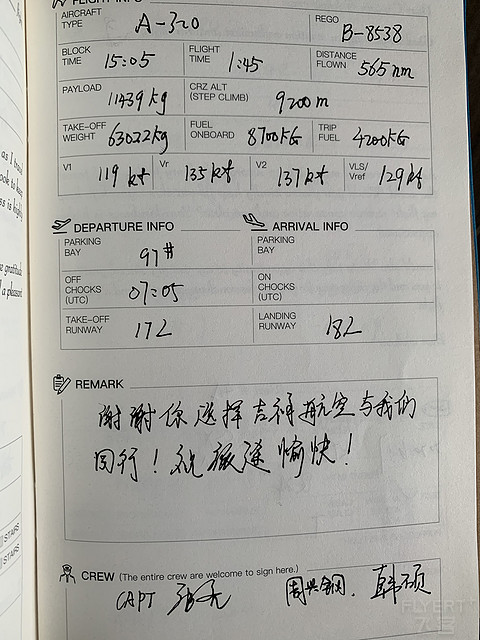 FLIGHT INFO
AIRCRAFT TYPE A-320 REGO B-8538
BLOCK TIME 15:05 FLIGHT TIME 1:45 DISTANCE FLOWN 565 nm
PAYLOAD 11439 kg CRZ ALT (STEP CLIMB) 9200 m
TAKE-OFF WEIGHT 63022kg FUEL ONBOARD 8700KG TRIP FUEL 4200KG
V1 119 kt Vr 135 kt V2 137 kt VLS/Vref 129 kt
DEPARTURE INFO ARRIVAL INFO
PARKING BAY 97# PARKING BAY
OFF CHOCKS (UTC) 07:05 ON CHOCKS (UTC)
TAKE-OFF RUNWAY 17L LANDING RUNWAY 18L
REMARK
谢谢你选择吉祥航空与我们
同行！祝旅途愉快！
CREW (The entire crew are welcome to sign here.)
CAPT
as I
is highly
gratitude
a pleasant
STARS
STARS
FLYERT